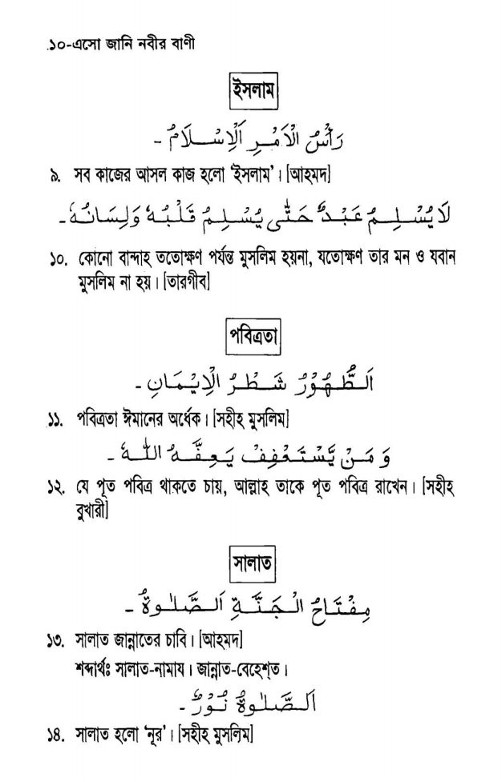 ১০-এসো জানি নবীর বাণী
ইসলাম
رَأْسُ الْاَمْرِ اَلْاِسْلَامُ -
৯. সব কাজের আসল কাজ হলো ‘ইসলাম’। [আহমদ]
لَا يُسْلِمُ عَبْدٌ حَتّٰى يُسْلِمُ قَلْبُهٗ وَلِسَانُهٗ -
১০. কোনো বান্দাহ ততোক্ষণ পর্যন্ত মুসলিম হয়না, যতোক্ষণ তার মন ও যবান
মুসলিম না হয়। [তারগীব]
পবিত্রতা
اَلطُّهُوْرُ شَطْرُ الْاِيْمَانِ -
১১. পবিত্রতা ঈমানের অর্ধেক। [সহীহ মুসলিম]
وَمَنْ يَّسْتَعْفِفْ يَعِفَّهُ اللّٰهُ -
১২. যে পূত পবিত্র থাকতে চায়, আল্লাহ তাকে পূত পবিত্র রাখেন। [সহীহ
বুখারী]
সালাত
مِفْتَاحُ الْجَنَّةِ اَلصَّلٰوةُ -
১৩. সালাত জান্নাতের চাবি। [আহমদ]
শব্দার্থঃ সালাত-নামায। জান্নাত-বেহেশ্ত।
اَلصَّلٰوةُ نُوْرٌ -
১৪. সালাত হলো ‘নূর’। [সহীহ মুসলিম]